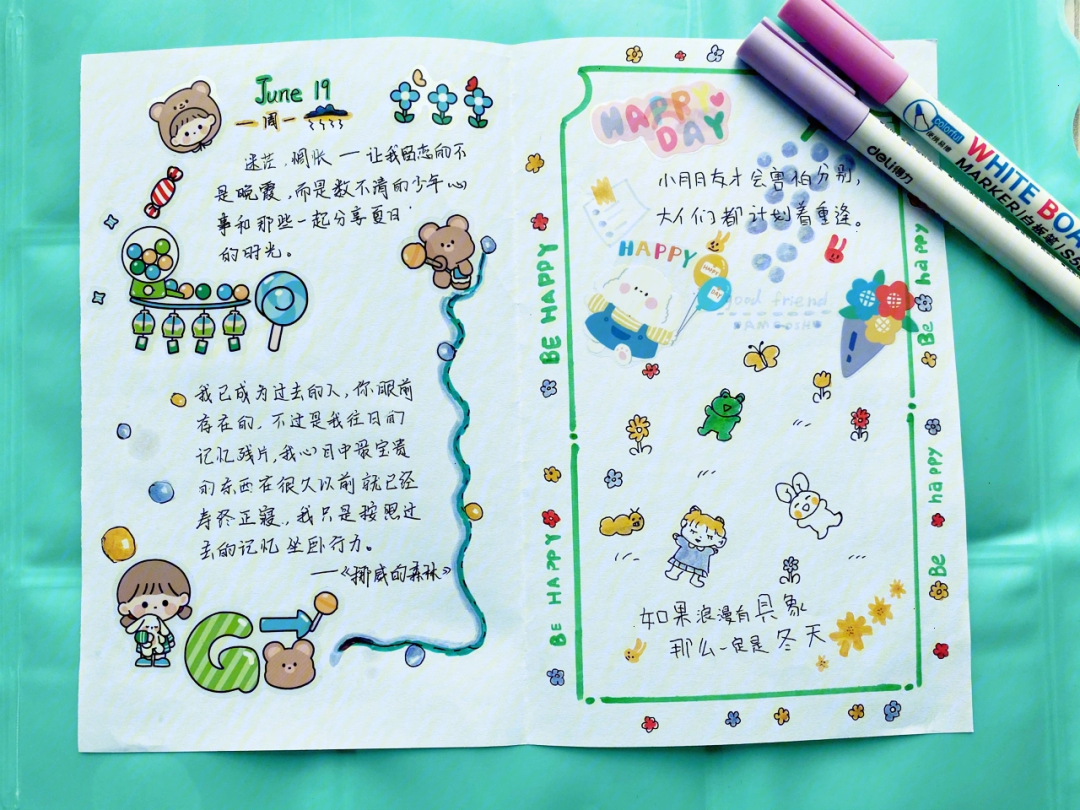 June 19
一周一
迷茫、惆怅一让我留恋的不
是晚霞，而是数不清的少年心
事和那些一起分享夏日
的时光。
我已成为过去的人，你眼前
存在的，不过是我往日的
记忆残片，我心目中最宝贵
的东西在很久以前就已经
寿终正寝，我只是按照过
去的记忆坐卧行力。
——《挪威的森林》
G
HAPPY
DAY
小朋友才会害怕分别，
大人们都计划着重逢。
HAPPY
HAPPY
DAY
good friend
如果浪漫有具象
那么一定是冬天
BE HAPPY
BE HAPPY
Be happy
Be happy
colorful
deli得力
WHITE BOA
MARKER/白板笔/S